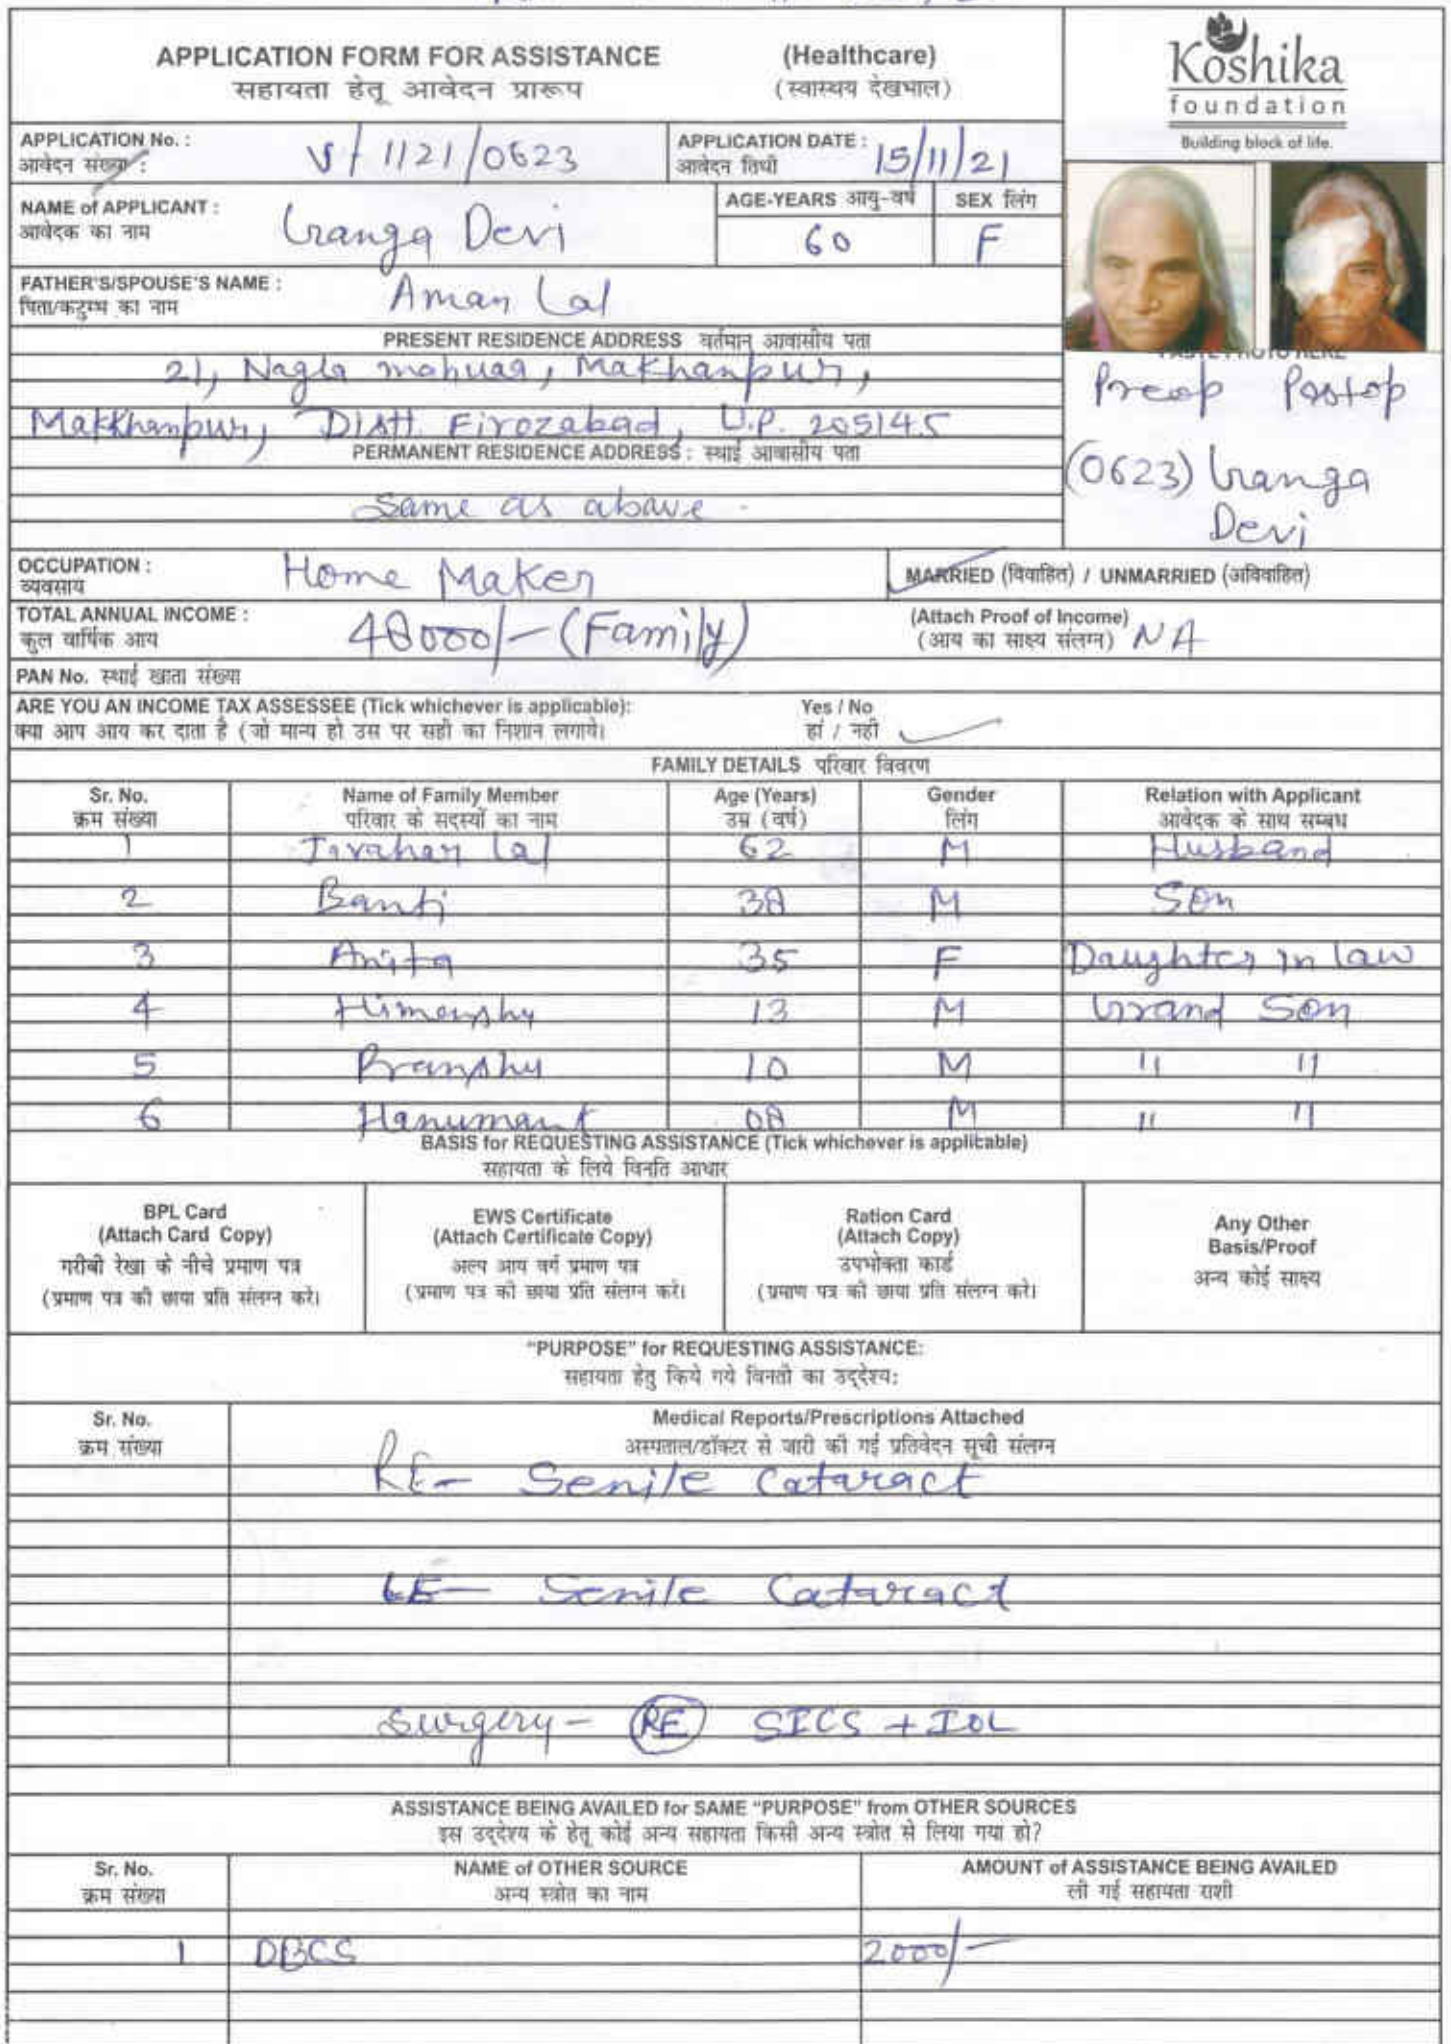 APPLICATION FORM FOR ASSISTANCE (Healthcare)
सहायता हेतू आवेदन प्रारूप (स्वास्थय देखभाल)
Koshika
foundation
Building block of life.
APPLICATION No. : V/1121/0623
आवेदन संख्या :
APPLICATION DATE : 15/11/21
आवेदन तिथी
NAME of APPLICANT : Ganga Devi
आवेदक का नाम
AGE-YEARS आयु-वर्ष 60
SEX लिंग F
FATHER'S/SPOUSE'S NAME : Aman Lal
पिता/कटुम्भ का नाम
PRESENT RESIDENCE ADDRESS वर्तमान आवासीय पता
21, Nagla mahuaa, Makhanpur,
Makkhanpur, Distt. Firozabad, U.P. 205145
PERMANENT RESIDENCE ADDRESS : स्थाई आवासीय पता
Same as above.
PASTE PHOTO HERE
Preop Postop
(0623) Ganga
Devi
OCCUPATION : Home Maker
व्यवसाय
MARRIED (विवाहित) / UNMARRIED (अविवाहित)
TOTAL ANNUAL INCOME : 48000/- (Family)
कुल वार्षिक आय
(Attach Proof of Income)
(आय का साक्ष्य संलग्न) NA
PAN No. स्थाई खाता संख्या
ARE YOU AN INCOME TAX ASSESSEE (Tick whichever is applicable): Yes / No
क्या आप आय कर दाता है (जो मान्य हो उस पर सही का निशान लगाये। हां / नही
FAMILY DETAILS परिवार विवरण
Sr. No. Name of Family Member Age (Years) Gender Relation with Applicant
क्रम संख्या परिवार के सदस्यों का नाम उम्र (वर्ष) लिंग आवेदक के साथ सम्बध
1 Javahar Lal 62 M Husband
2 Banti 38 M Son
3 Anita 35 F Daughter in law
4 Himanshu 13 M Grand Son
5 Pranshu 10 M " "
6 Hanumant 08 M " "
BASIS for REQUESTING ASSISTANCE (Tick whichever is applicable)
सहायता के लिये विनति आधार
BPL Card
(Attach Card Copy)
गरीबी रेखा के नीचे प्रमाण पत्र
(प्रमाण पत्र की छाया प्रति संलग्न करे।
EWS Certificate
(Attach Certificate Copy)
अल्प आय वर्ग प्रमाण पत्र
(प्रमाण पत्र की छाया प्रति संलग्न करे।
Ration Card
(Attach Copy)
उपभोक्ता कार्ड
(प्रमाण पत्र की छाया प्रति संलग्न करे।
Any Other
Basis/Proof
अन्य कोई साक्ष्य
"PURPOSE" for REQUESTING ASSISTANCE:
सहायता हेतु किये गये विनती का उद्देश्य:
Sr. No. Medical Reports/Prescriptions Attached
क्रम संख्या अस्पताल/डॉक्टर से जारी की गई प्रतिवेदन सूची संलग्न
RE- Senile Cataract
LE- Senile Cataract
Surgery- RE SICS + IOL
ASSISTANCE BEING AVAILED for SAME "PURPOSE" from OTHER SOURCES
इस उद्देश्य के हेतू कोई अन्य सहायता किसी अन्य स्त्रोत से लिया गया हो?
Sr. No. NAME of OTHER SOURCE AMOUNT of ASSISTANCE BEING AVAILED
क्रम संख्या अन्य स्त्रोत का नाम ली गई सहायता राशी
1 DBCS 2000/-